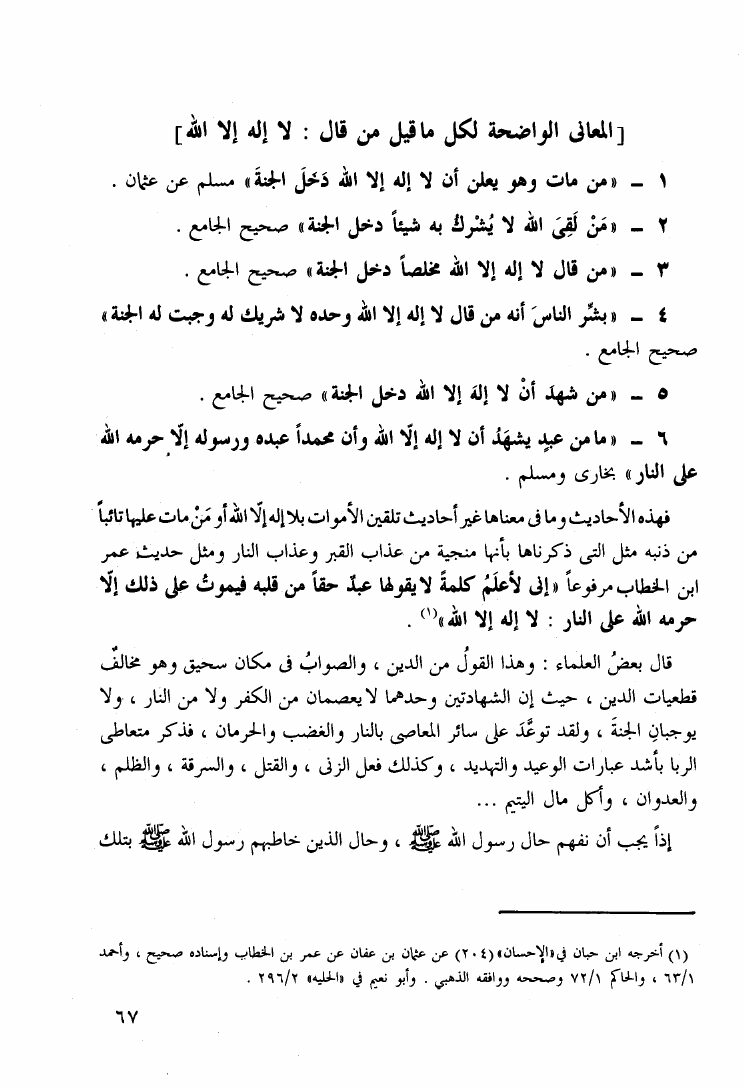 [المعانى الواضحة لكل ماقيل من قال : لا إله إلا الله]
١ ـ «من مات وهو يعلن أن لا إله إلا الله دَخَلَ الجنةَ» مسلم عن عثمان .
٢ ـ «مَنْ لَقِىَ الله لا يُشْركُ به شيئاً دخل الجنة» صحيح الجامع .
٣ ـ «من قال لا إله إلا الله مخلصاً دخل الجنة» صحيح الجامع .
٤ ـ «بشِّر الناسَ أنه من قال لا إله إلا الله وحده لا شريك له وجبت له الجنة»
صحيح الجامع .
٥ ـ «من شهدَ أنْ لا إلهَ إلا الله دخل الجنة» صحيح الجامع .
٦ ـ «مامن عبدٍ يشهَدُ أن لا إله إلّا الله وأن محمداً عبده ورسوله إلّا حرمه الله
على النار» بخارى ومسلم .
فهذه الأحاديث وما فى معناها غير أحاديث تلقين الأموات بلا إله إلّا الله أو مَنْ مات عليها تائباً
من ذنبه مثل التى ذكرناها بأنها منجية من عذاب القبر وعذاب النار ومثل حديث عمر
ابن الخطاب مرفوعاً «إنى لأعلَمُ كلمةً لا يقولها عبدٌ حقاً من قلبه فيموتُ على ذلك إلّا
حرمه الله على النار : لا إله إلا الله»(١) .
قال بعضُ العلماء : وهذا القولُ من الدين ، والصوابُ فى مكان سحيق وهو مخالفٌ
قطعيات الدين ، حيث إن الشهادتين وحدهما لا يعصمان من الكفر ولا من النار ، ولا
يوجبانِ الجنةَ ، ولقد توعَّدَ على سائر المعاصى بالنار والغضب والحرمان ، فذكر متعاطى
الربا بأشد عبارات الوعيد والتهديد ، وكذلك فعل الزنى ، والقتل ، والسرقة ، والظلم ،
والعدوان ، وأكل مال اليتيم ...
إذاً يجب أن نفهم حال رسول الله ﷺ ، وحال الذين خاطبهم رسول الله ﷺ بتلك
(١) أخرجه ابن حبان في «الإحسان» (٢٠٤) عن عثمان بن عفان عن عمر بن الخطاب وإسناده صحيح ، وأحمد
٦٣/١ ، والحاكم ٧٢/١ وصححه ووافقه الذهبي . وأبو نعيم في «الحليه» ٢٩٦/٢ .
٦٧